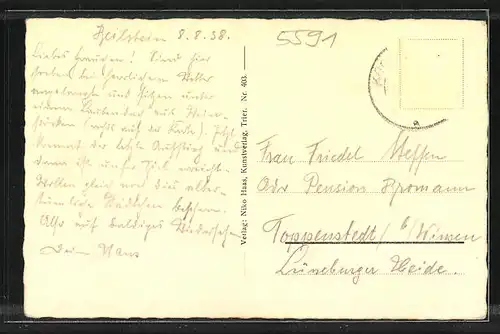 Beilstein 8.8.38.
5591
Liebes Frauchen! Sind hier
soeben bei herrlichem Wetter
angelangt und sitzen unter
einem Laubendach aus Wein-
stöcken (nicht auf der Karte). Jetzt
kommt der letzte Aufstieg und
dann ist unser Ziel erreicht.
Wollen gleich noch dies alter-
tümliche Städtchen besehen.
Also auf baldiges Wiedersehen
Dein Hans
Verlag: Niko Haas, Kunstverlag, Trier. Nr. 403.
Frau Friedel Steffen
Adr Pension
Toppenstedt / b/Winsen
Lüneburger Heide.